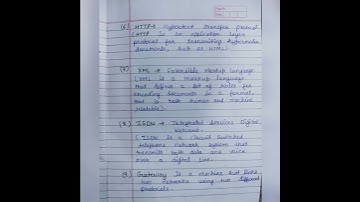 (6) HTTP → Hypertext transfer protocol
(HTTP is an application layer
protocol for transmitting hypermedia
documents, such as HTML)
(7) XML → Extensible Markup Language
(XML is a markup language
that defines a set of rules for
encoding documents in a format
that is both human and machine
readable)
(8) ISDN → Integrated Services Digital
Network.
(ISDN is a circuit switched
telephone network system that
transmits both data and voice
over a digital line.
(9) Gateway is a machine that links
two networks using two different
protocols.